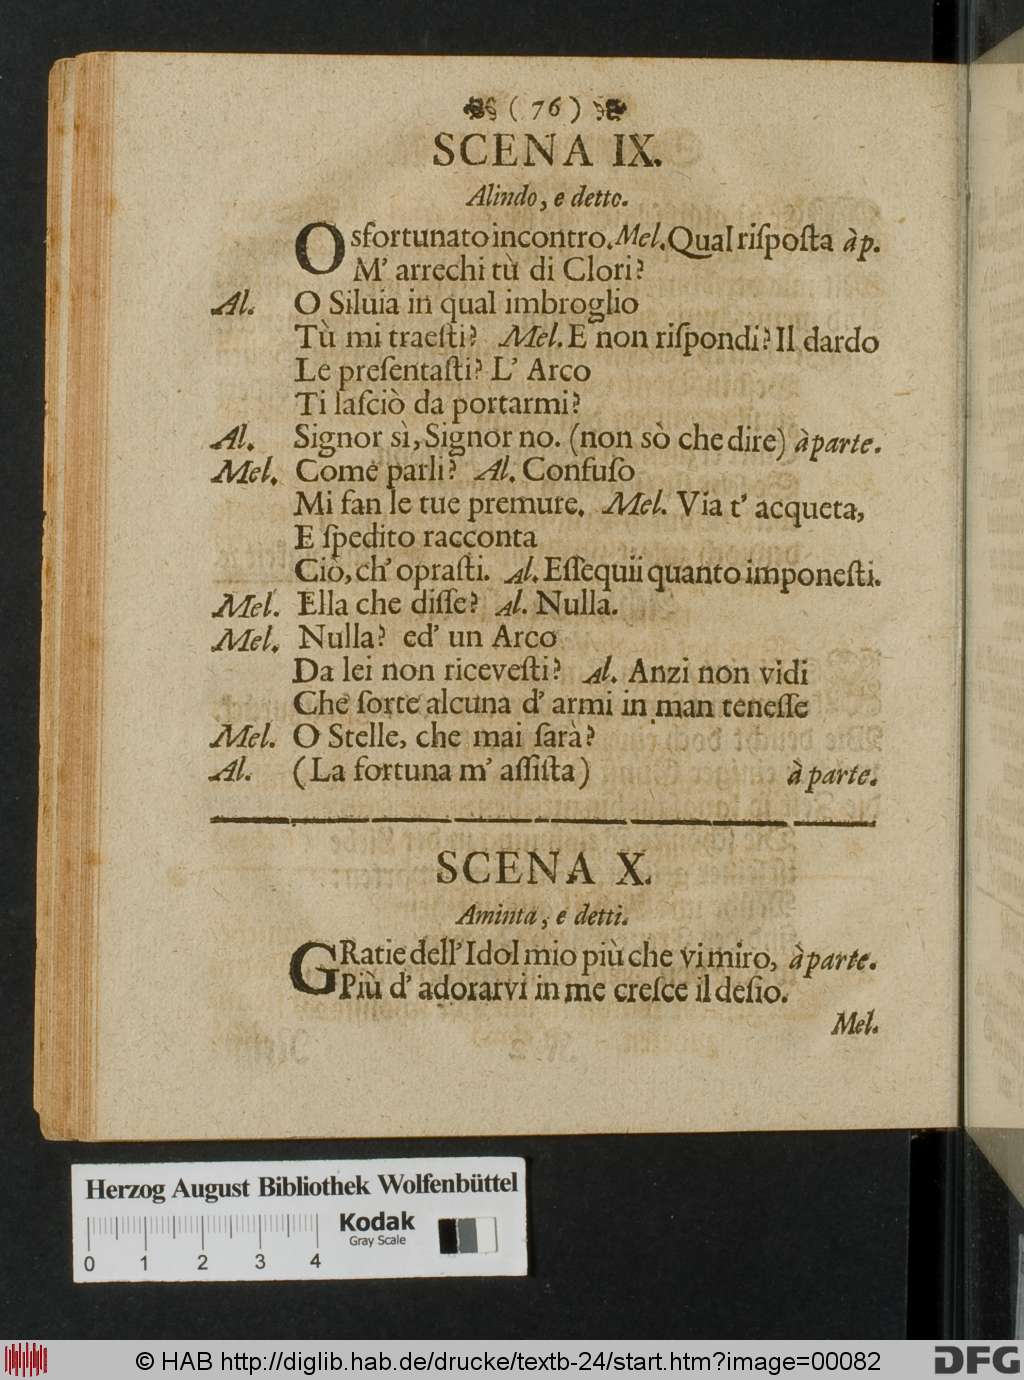 ( 76 )
SCENA IX.
Alindo, e detto.
O sfortunato incontro. Mel. Qual riſpoſta à p.
M' arrechi tù di Clori?
Al. O Siluia in qual imbroglio
Tù mi traeſti? Mel. E non riſpondi? Il dardo
Le preſentaſti? L' Arco
Ti laſciò da portarmi?
Al. Signor sì, Signor no. (non sò che dire) à parte.
Mel. Come parli? Al. Confuſo
Mi fan le tue premure. Mel. Via t' acqueta,
E ſpedito racconta
Ciò, ch' opraſti. Al. Eſſequii quanto imponeſti.
Mel. Ella che diſſe? Al. Nulla.
Mel. Nulla? ed' un Arco
Da lei non riceveſti? Al. Anzi non vidi
Che ſorte alcuna d' armi in man teneſſe
Mel. O Stelle, che mai ſarà?
Al. (La fortuna m' aſſiſta) à parte.
SCENA X.
Aminta, e detti.
GRatie dell' Idol mio più che vi miro, à parte.
Più d' adorarvi in me creſce il deſio.
Mel.
Herzog August Bibliothek Wolfenbüttel
Kodak
Gray Scale
0 1 2 3 4
© HAB http://diglib.hab.de/drucke/textb-24/start.htm?image=00082
DFG